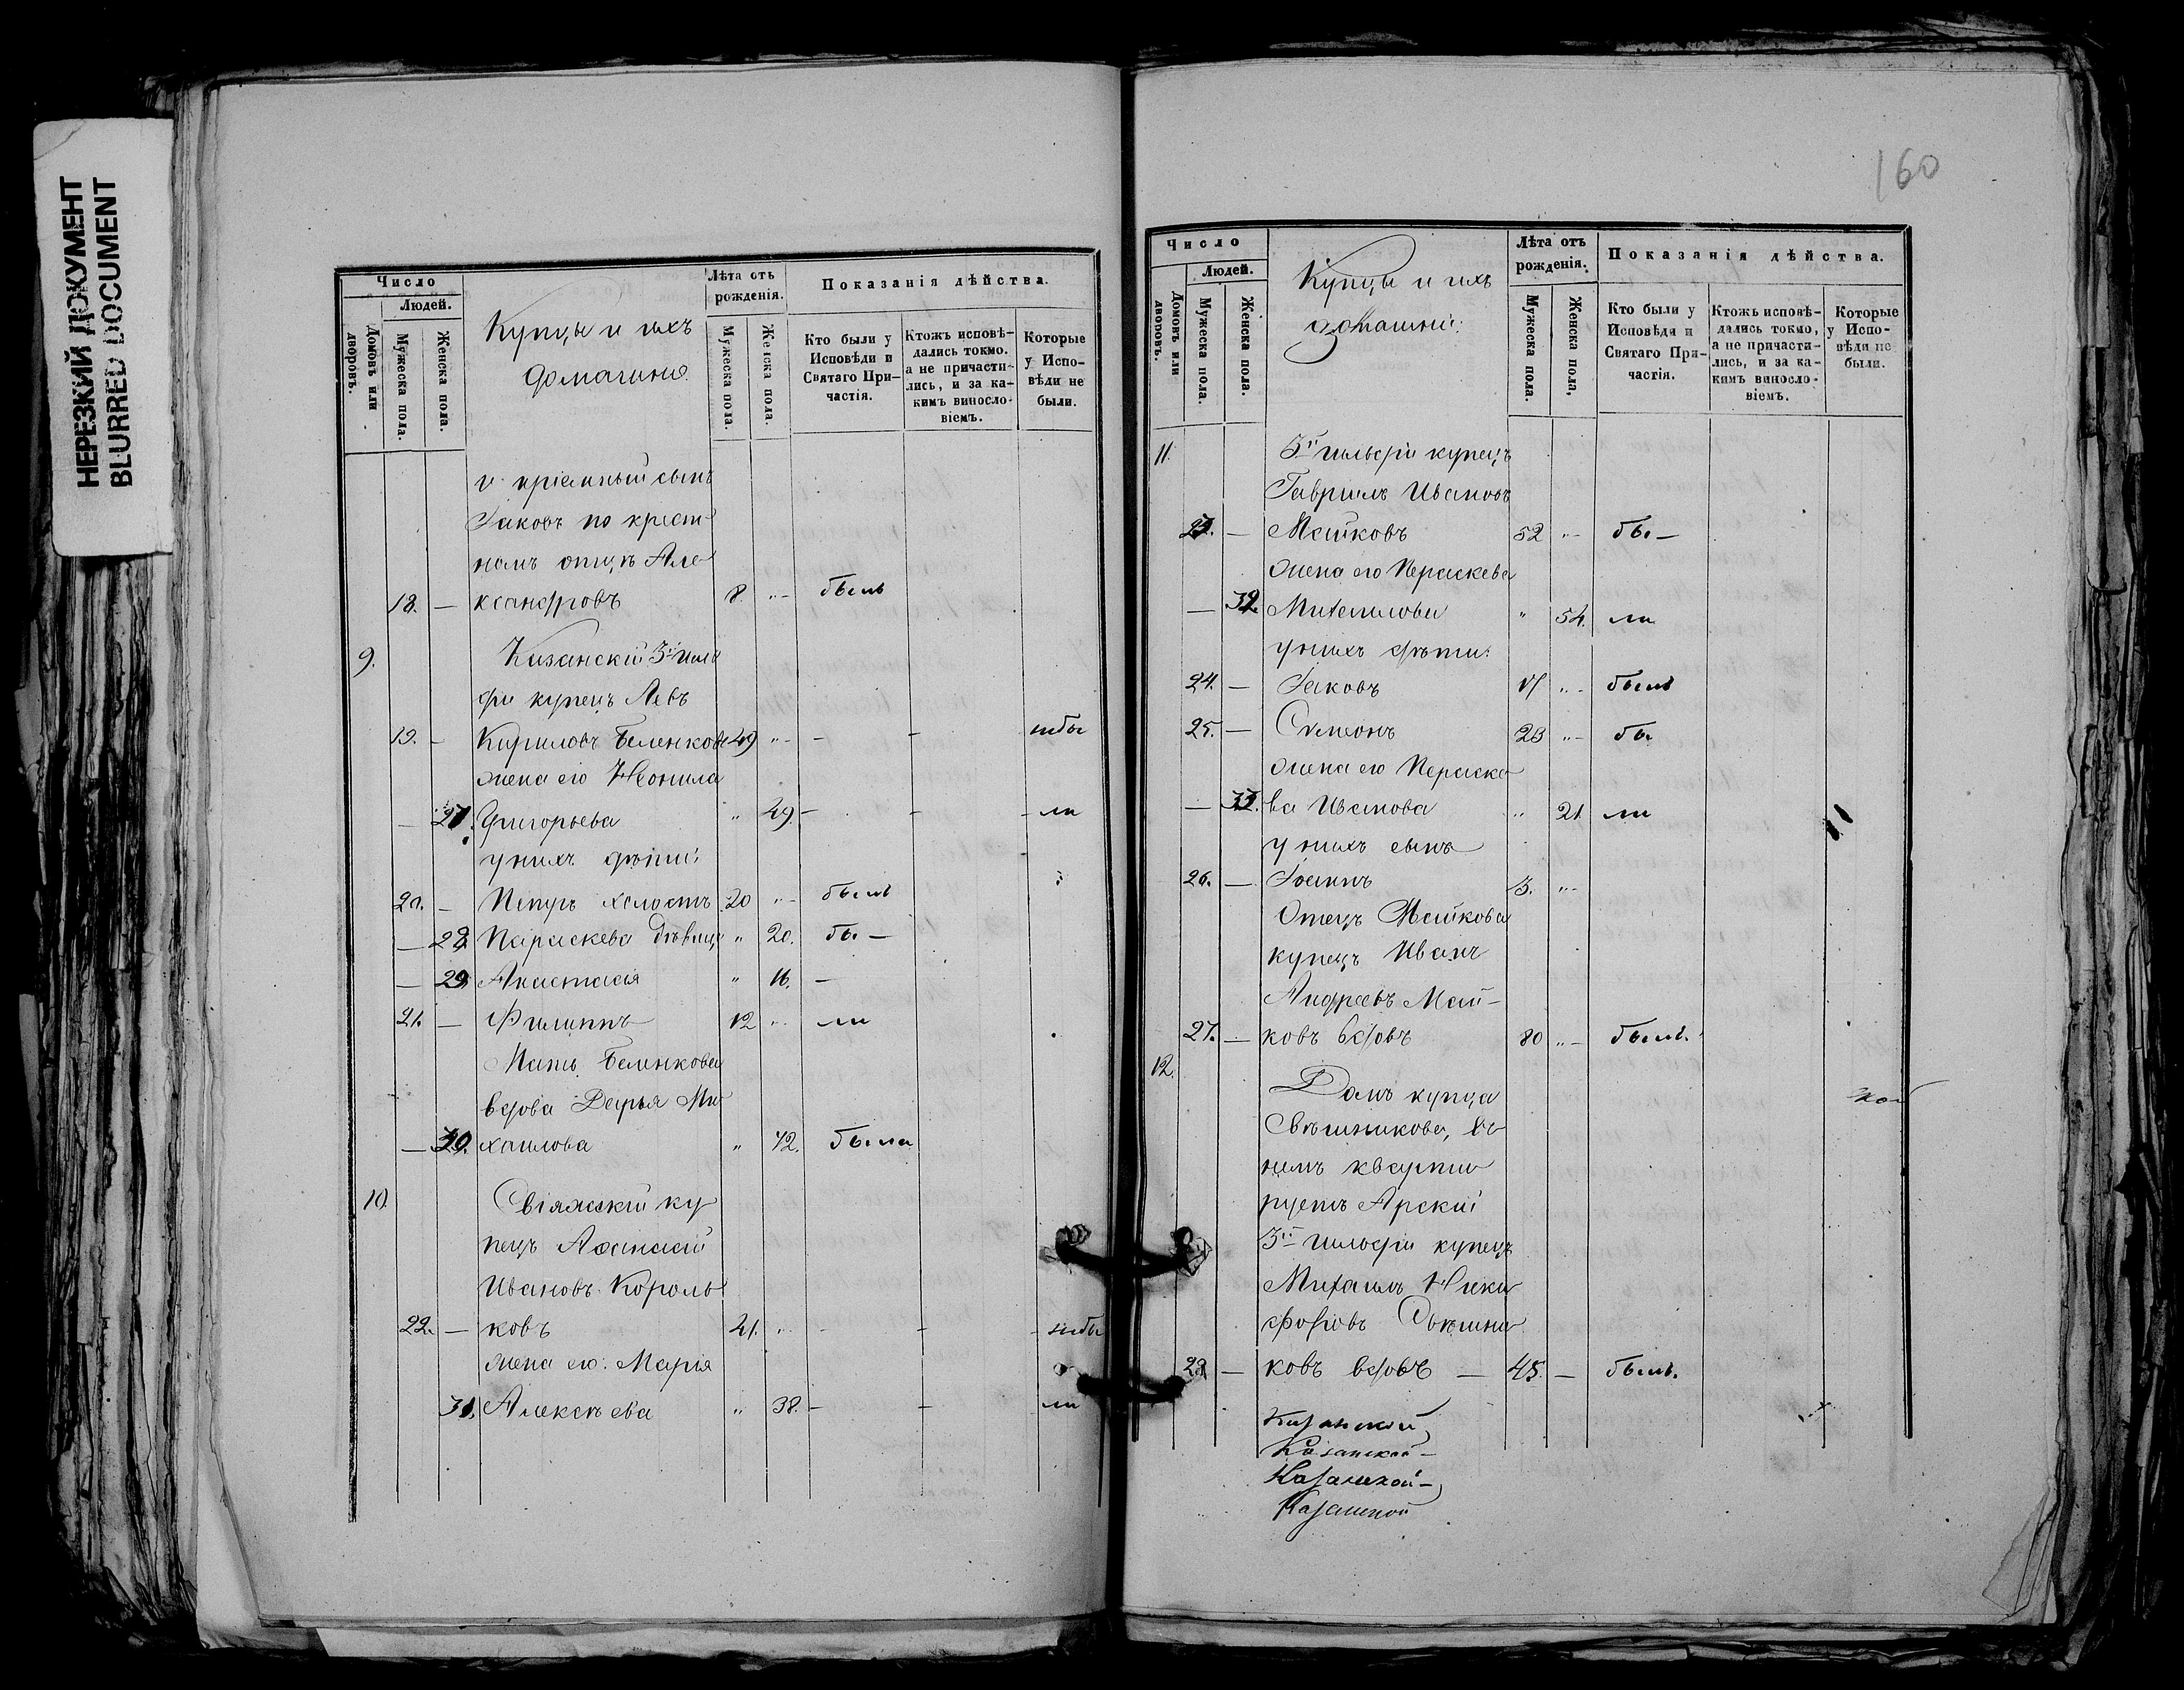 НЕРЕЗКИЙ ДОКУМЕНТ
BLURRED DOCUMENT
Число
Людей.
Домовъ или дворовъ.
Мужеска пола.
Женска пола.
Купцы и ихъ
домашнія.
Лѣта отъ рожденія.
Мужеска пола.
Женска пола.
Показанія дѣйства.
Кто были у Исповѣди и Святаго Причастія.
Ктожъ исповѣдались токмо. а не причастились, и за какимъ винословіемъ.
Которые у Исповѣди не были.
и пріемный сынъ
Іаковъ по крест-
номъ отцѣ Але-
18. — ксандровъ 8. „ — былъ
9. Казанскій 3й гиль
діи купецъ Левъ
19. — Кириловъ Беленковъ 49 „ — — — небы
жена его Неонила
— 27. Григорьева „ 49. — — — ли
у нихъ дѣти:
20. — Петръ холостъ 20 „ — былъ
— 28. Параскева дѣвица „ 20. бы —
— 29. Анастасія „ 16. —
21. — Филиппъ 12 „ — ли
Мать Беленкова
вдова Дарья Ми
— 30. хаилова „ 72. была
10. Свіяжскій ку
пецъ Афанасій
Ивановъ Король
22. — ковъ 41. „ — — — небы
жена его Марія
31. Алексѣева „ 38. — — — ли
160
Число
Людей.
Домовъ или дворовъ.
Мужеска пола.
Женска пола.
Купцы и ихъ
домашніи:
Лѣта отъ рожденія.
Мужеска пола.
Женска пола,
Показанія дѣйства.
Кто были у Исповѣди и Святаго Причастія.
Ктожъ исповѣдались токмо, а не причастились, и за какимъ винословіемъ.
Которые у Исповѣди не были.
11. 3й гильдіи купецъ
Гавріилъ Ивановъ
23. — Майковъ 52 „ — бы —
жена его Параскева
— 32. Михаилова „ 54. ли
у нихъ дѣти:
24. — Іаковъ 17 „ — былъ
25. — Симеонъ 23 „ — бы
жена его Параске
— 33. ва Иванова „ 21. ли
у нихъ сынъ
26. — Іоаннъ „ —
Отецъ Майкова
купецъ Иванъ
Андреевъ Май-
27. — ковъ вдовъ 80 „ — былъ.
12. Домъ купца
Свѣшникова, въ
немъ кварти
руетъ Арскій
3й гильдіи купецъ
Михаилъ Ники
форовъ
28. — ковъ вдовъ — 45. — былъ.
Казанской
Казанской —
Казанской —
Казанской